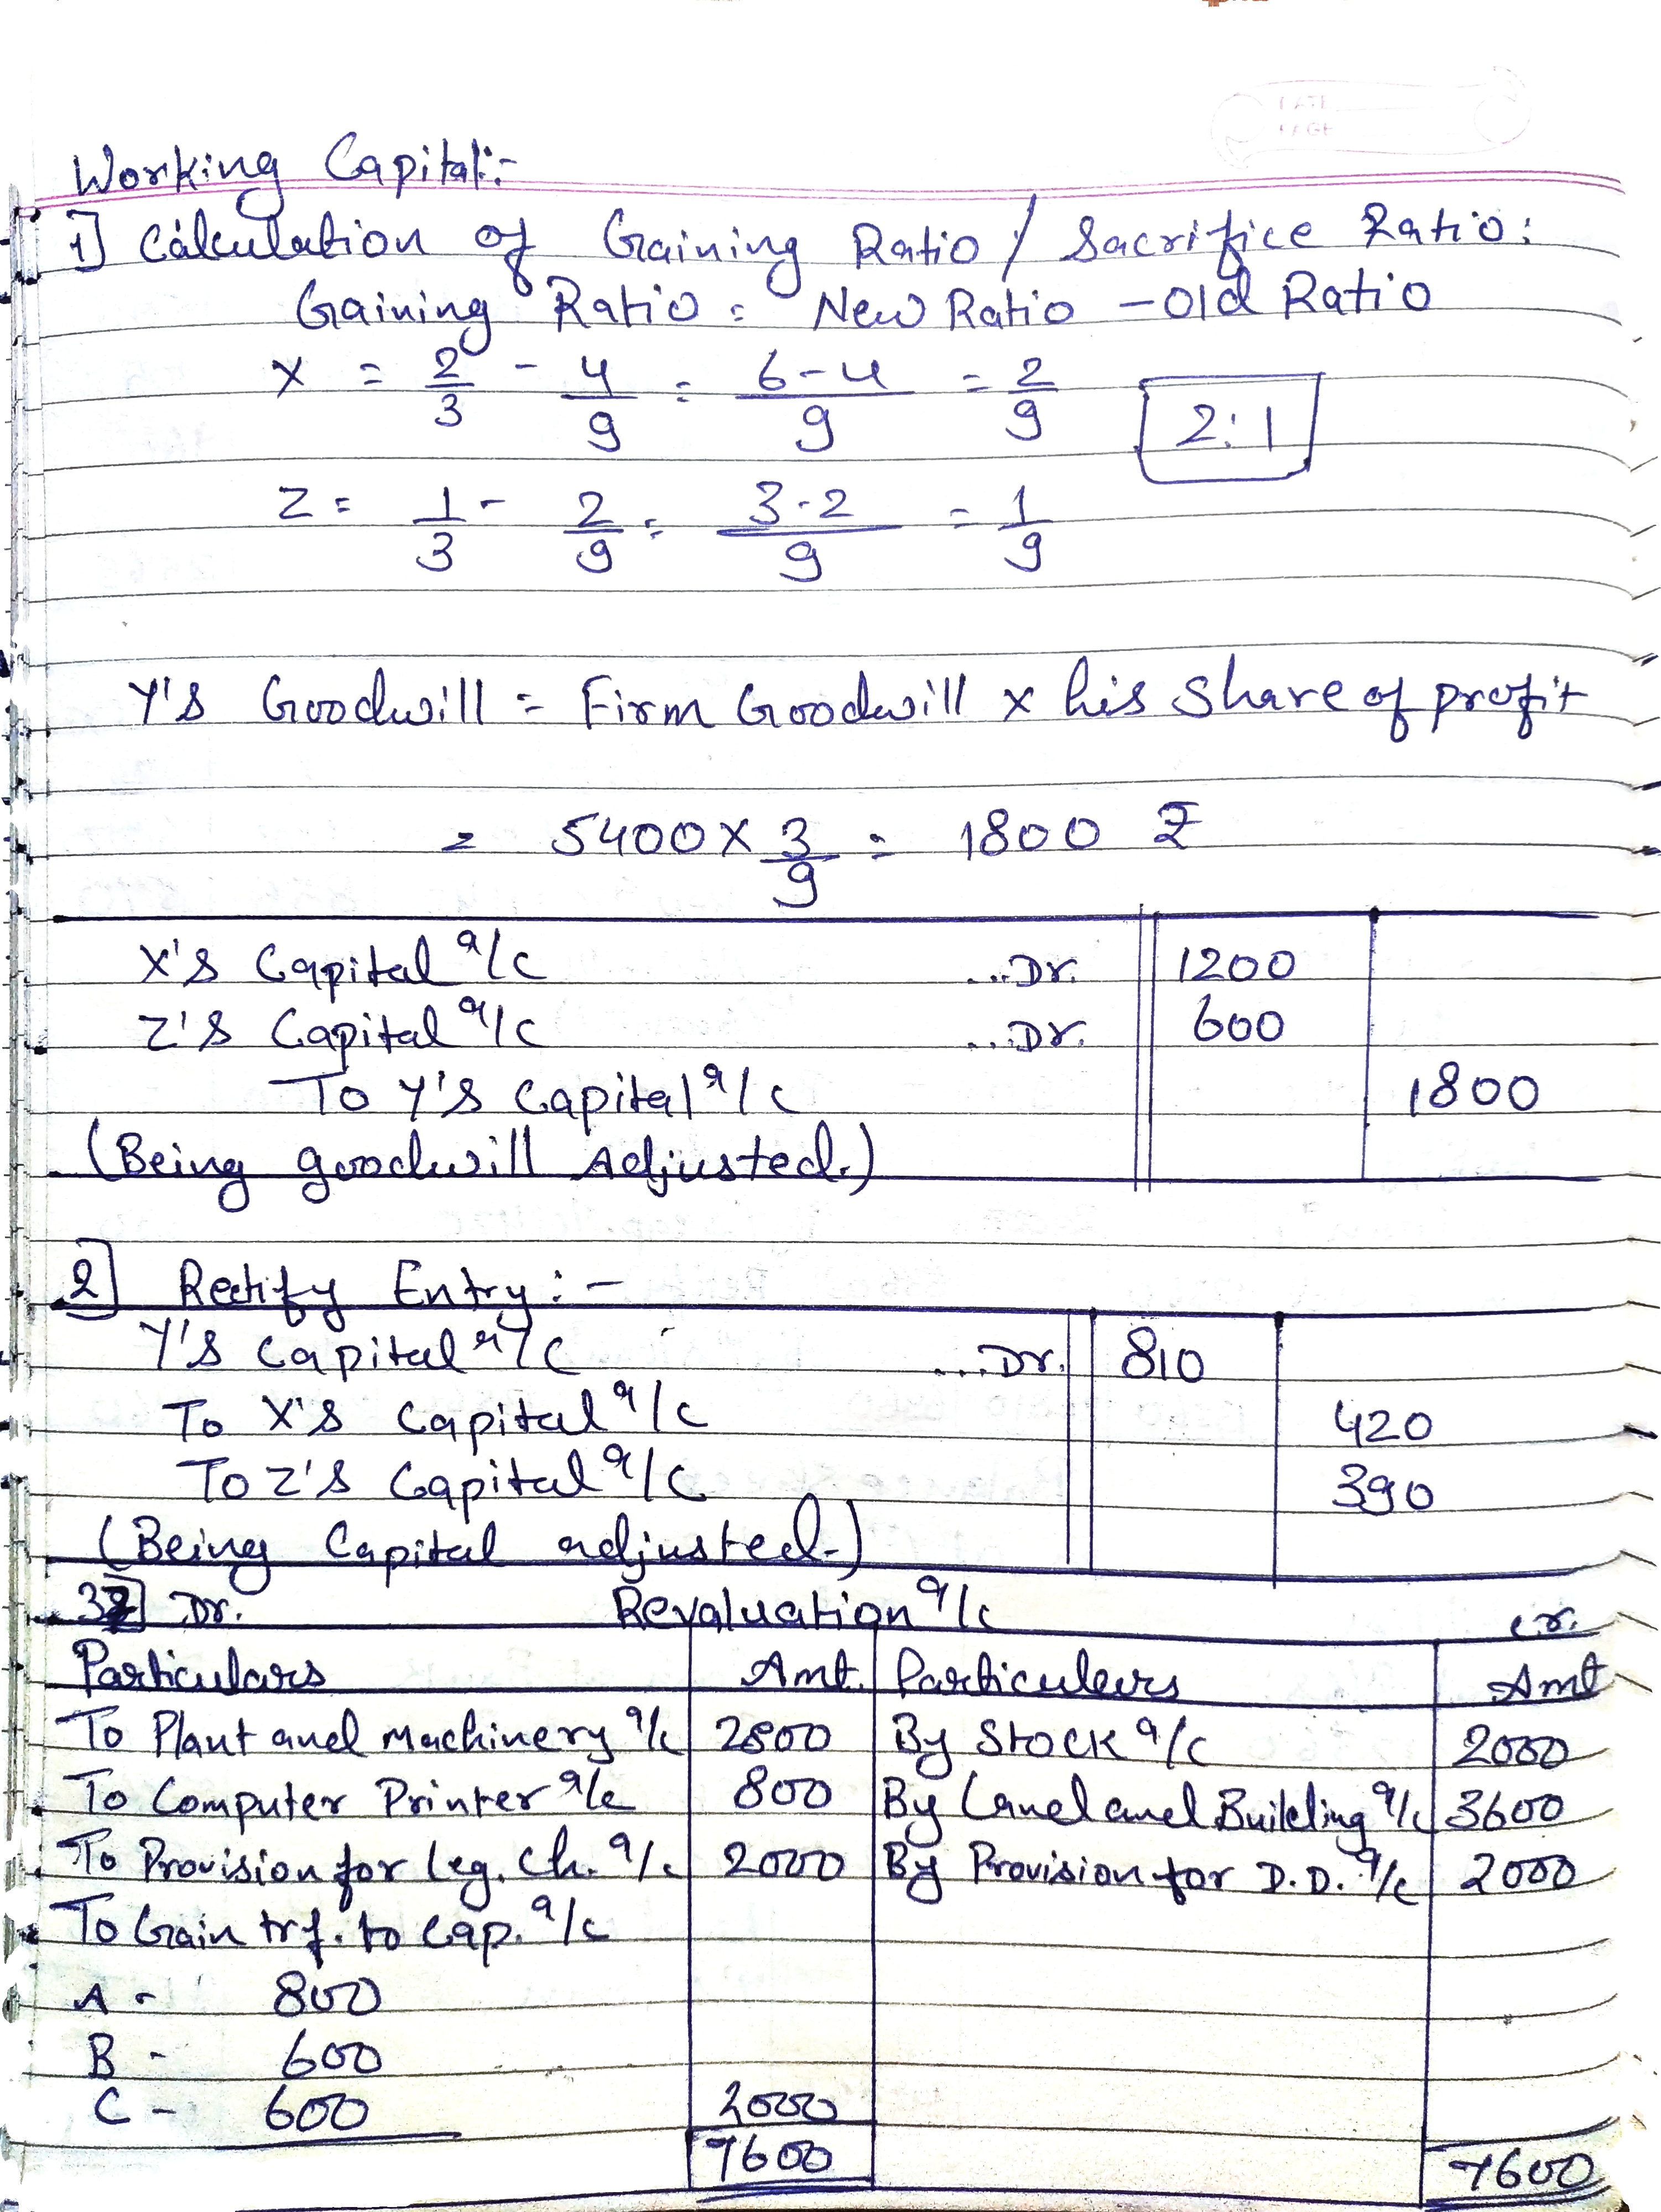 DATE
PAGE
Working Capital:-
1] Calculation of Gaining Ratio / Sacrifice Ratio:
Gaining Ratio = New Ratio - Old Ratio
X = 2/3 - 4/9 = 6-4/9 = 2/9
2:1
Z = 1/3 - 2/9 = 3-2/9 = 1/9
Y's Goodwill = Firm Goodwill x his share of profit
= 5400 x 3/9 = 1800 ₹
X's Capital a/c ...Dr. 1200
Z's Capital a/c ...Dr. 600
To Y's Capital a/c 1800
(Being goodwill Adjusted.)
2] Rectify Entry:-
Y's Capital a/c ...Dr. 810
To X's Capital a/c 420
To Z's Capital a/c 390
(Being Capital adjusted.)
3] Dr. Revaluation a/c Cr.
Particulars Amt. Particulars Amt
To Plant and Machinery a/c 2800 By Stock a/c 2000
To Computer Printer a/c 800 By Land and Building a/c 3600
To Provision for Leg. Ch. a/c 2000 By Provision for D.D. a/c 2000
To Gain trf. to Cap. a/c
A - 800
B - 600
C - 600 2000
7600 7600